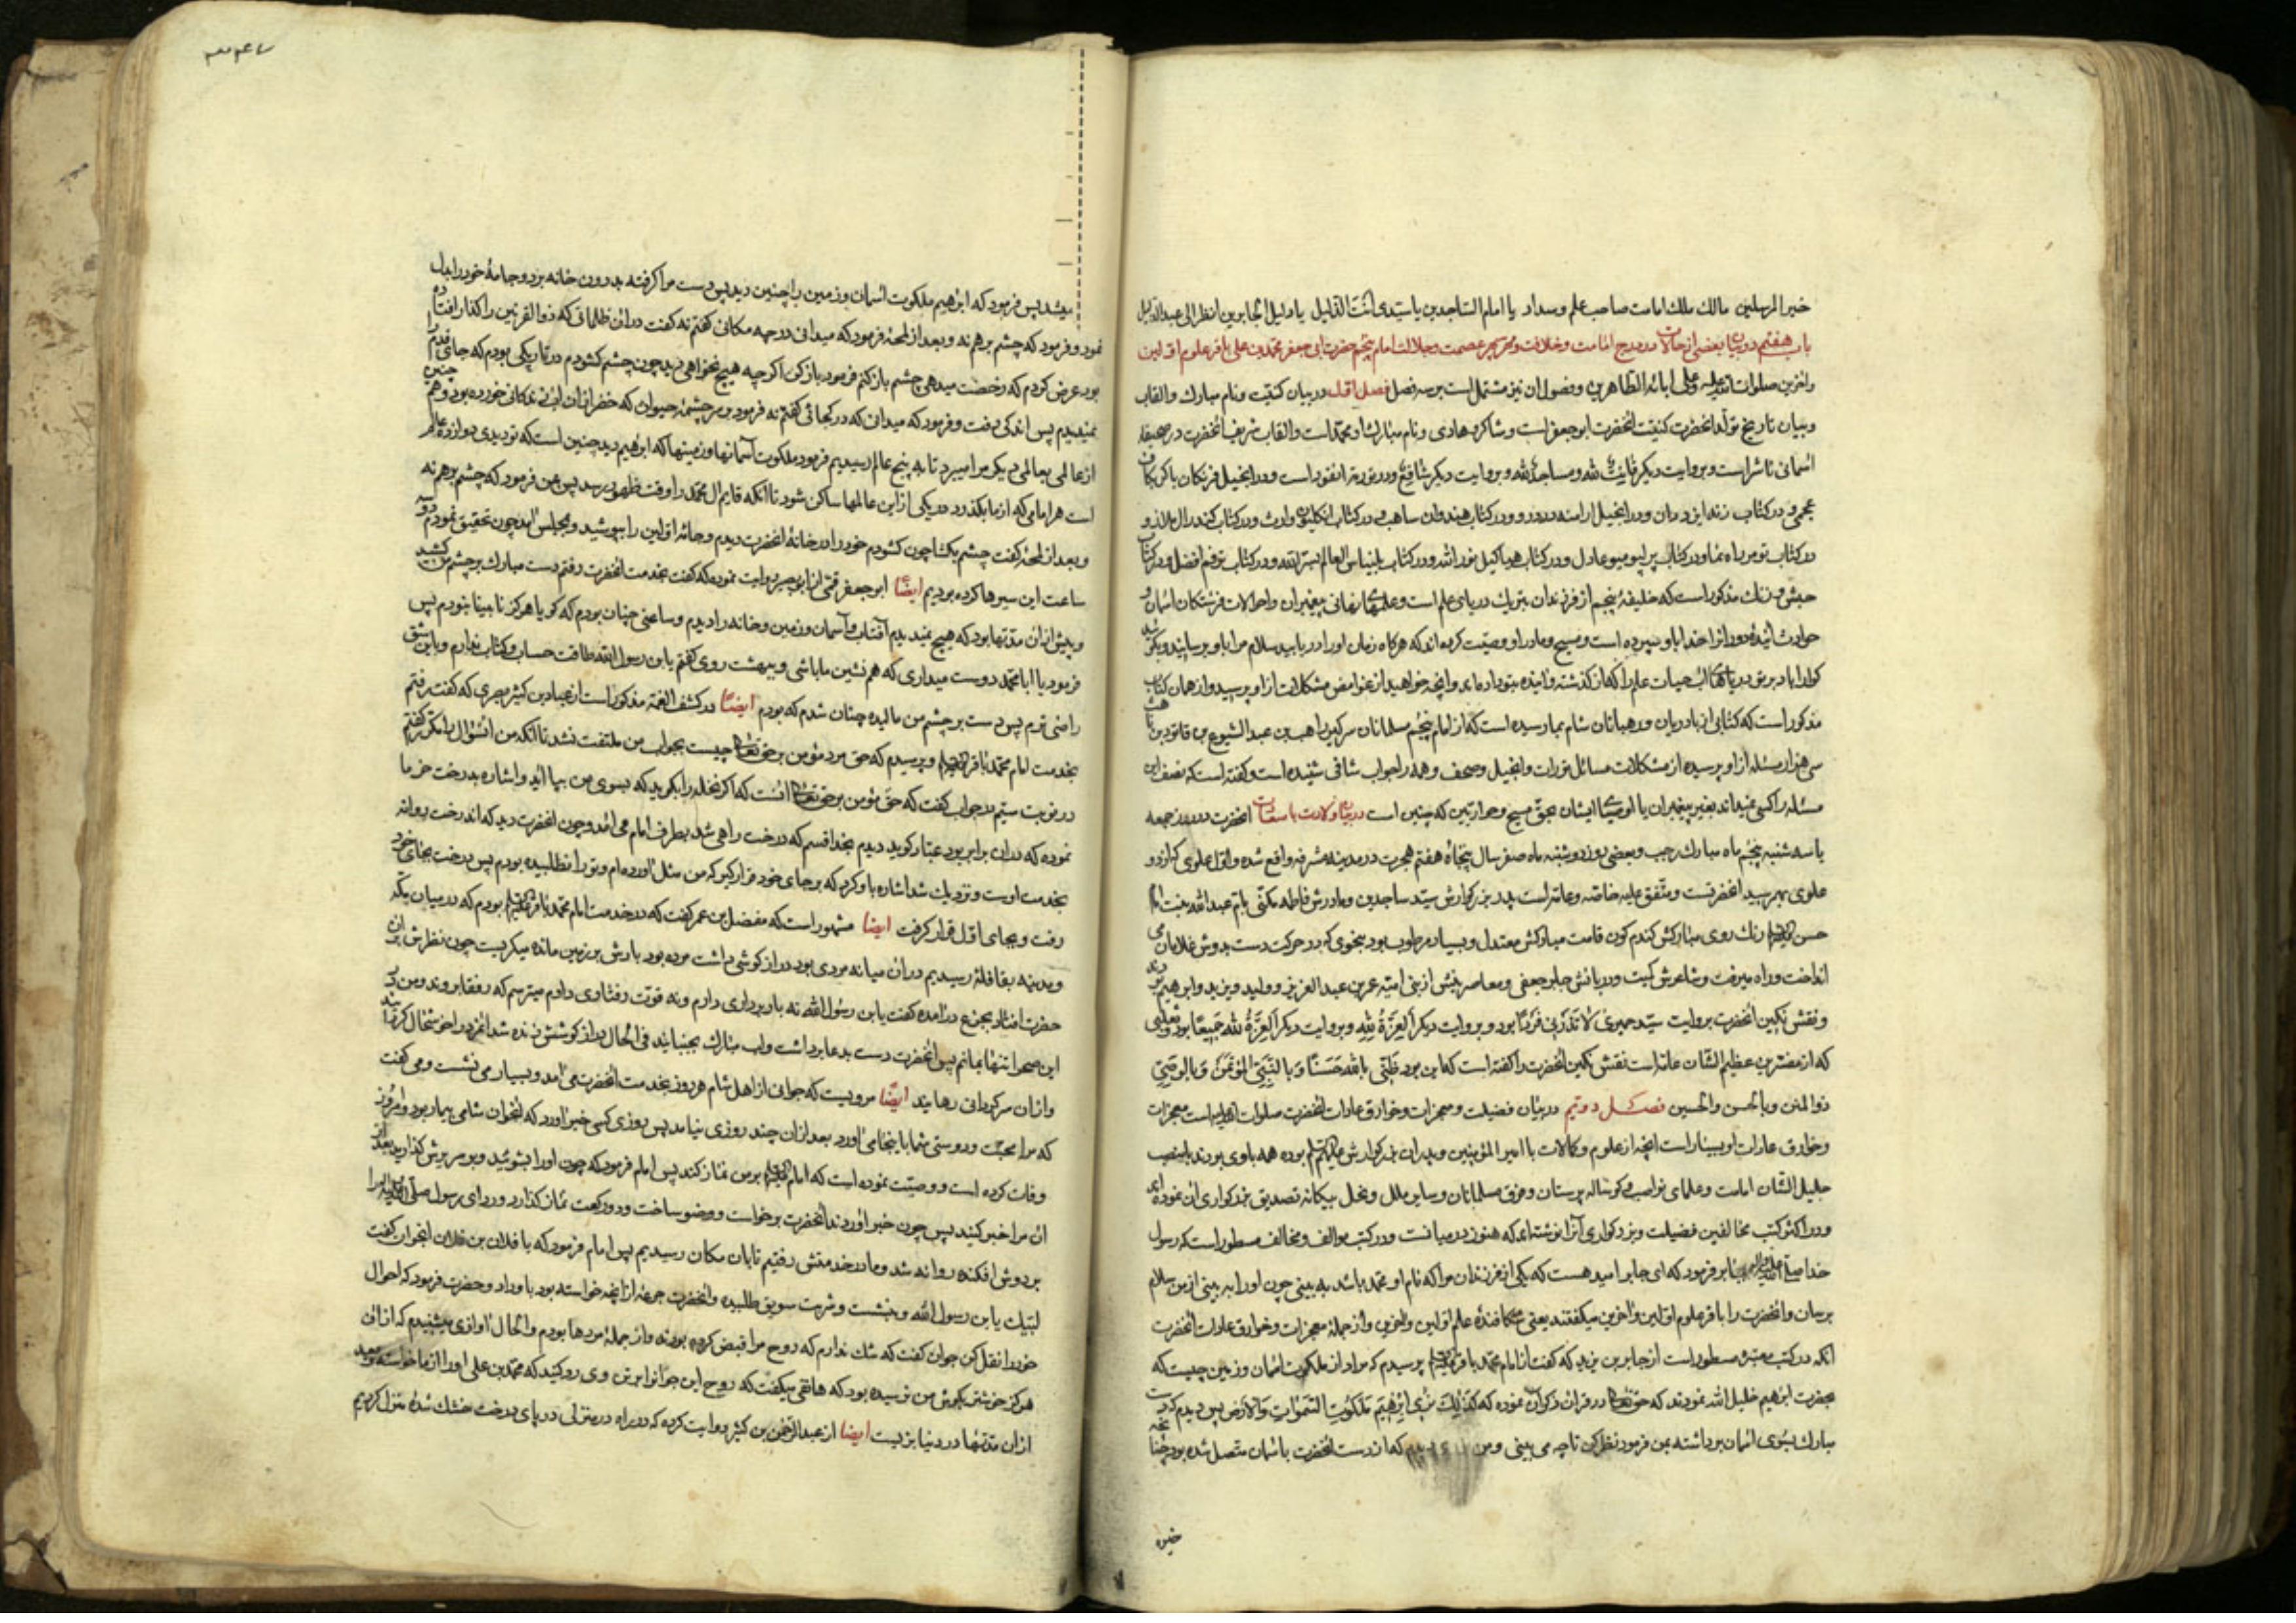 خیر المرسلین مالك ملك امامت صاحب علم و سداد یا امام الساجدین یا سیّدی انت الدلیل یا دلیل الحایرین انظر الی عبد الذلیل
باب هفتم در بیان بعضی از حالات و در درج امامت و خلافت عصمت و جلالت امام پنجم حضرت ابی جعفر محمد بن علی باقر علوم اولین
و آخرین صلوات الله علیه و علی ابائه الطاهرین و فصول ان نیز مشتمل است بر سه فصل فصل اول در بیان كنیت و نام مبارك و القاب
و بیان تاریخ تولد انحضرت كنیت انحضرت ابو جعفر است و شاكر و هادی و نام مبارك او محمد است و القاب شریف انحضرت در صحیفه
اسمانی ناشر است و بروایت دیگر لله و ساجد لله و بروایت دیگر شافع و در توریة است و در انجیل
و در كتاب زند و در انجیل ارامنه و در كتاب هندوان و در كتاب وارث و در كتاب
در كتاب و در كتاب عادل و در كتاب نور الله و در كتاب و در كتاب افضل و در كتاب
مذكور است كه خلیفه پنجم از فرزندان دریای علم است و پیغمبران و احوالات فرشتكان اسمان و
حوادث اینده و را خدا باو سپرده است و مسیح و مادر او وصیت كرده اند كه هركاه زمان او را دریابید سلام مرا باو برسانید
حیات علم را كه از كذشته و اینده بتو داده اند و انچه خواهید از غوامض مشكلات از او بپرسید و از همان كتاب
مذكور است كه كتابی از پادریان و رهبانان شام بما رسیده است كه از امام پنجم مسلمانان راهب بن عبد
سی هزار مسئله از او پرسیده از مشكلات مسائل تورات و انجیل و صحف و همه را جواب شافی شنیده است و كفته است كه نصف این
مسئله را كسی نمیداند بغیر پیغمبران یا اوصیای ایشان بحق مسیح و حواریین كه چنین است در بیان ولادت با سعادت انحضرت در روز جمعه
یا سه شنبه پنجم ماه مبارك رجب و بعضی روز دوشنبه ماه صفر سال پنجاه هفتم هجرت در مدینه مشرفه واقع شده و اول علوی كه از دو
علوی بهم رسید انحضرتست و متفق علیه خاصه و عامه است پدر بزركوارش سید ساجدین و مادرش فاطمه مكنی بام عبد الله بنت امام
حسن رنك روی مباركش كندم كون قامت مباركش معتدل و بسیار مرطوب بود بنحوی كه در حركت دست بدوش غلامان می
انداخت و راه میرفت و شاعرش كمیت و دربانش جابر جعفی و معاصرینش از بنی امیه عمر بن عبد العزیز و ولید و یزید و ابرهیم بودند
و نقش نكین انحضرت بروایت سید حمیری لا تذرنی فردا بود و بروایت دیگر العزة لله و بروایت دیگر العزة لله جمیعا بود و ثعلبی
كه از مفسرین عظیم الشان عامه است نقش نكین انحضرت را كفته است كه این بود ظنی بالله حسنا و بالنبی المؤتمن و بالوصی
ذو المنن و بالحسن و الحسین فصل دویم در بیان فضیلت و معجزات و خوارق عادات انحضرت صلوات الله علیه است معجزات
و خوارق عادات او بسیار است انچه از علوم و كمالات با امیر المؤمنین و پدران بزركوارش علیهم السلام بوده همه با وی بودند بمنصب
جلیل الشان امامت و علمای نواصب و كوساله پرستان و فرق مسلمانان و سایر ملل و نحل بیكانه تصدیق بزركواری ان نموده اند
و در اكثر كتب مخالفین فضیلت و بزركواری آنرا نوشته اند كه هنوز در میانست و در كتب موالف و مخالف مسطور است كه رسول
خدا صلی الله علیه و آله بجابر فرمود كه ای جابر امید هست كه یكی از فرزندان مرا كه نام او محمد باشد به بینی چون او را به بینی از من سلام
برسان و انحضرت را باقر علوم اولین و آخرین میكفتند یعنی شكافنده علم اولین و آخرین و از جمله معجزات و خوارق عادات انحضرت
انكه در كتب معتبره مسطور است از جابر بن یزید كه كفت از امام محمد باقر علیه السلام پرسیدم كه مراد از ملكوت اسمان و زمین چیست كه
بحضرت ابرهیم خلیل الله نمودند كه حق تعالی در قران ذكر ان نموده كه كذلك نری ابرهیم ملكوت السموات و الارض پس دیدم كه دست
مبارك بسوی اسمان برداشته بمن فرمود نظر كن تا چه می بینی و من دیدم كه از دست انحضرت باسمان متصل شده بود چنانچه
خیره
میشد پس فرمود كه ابرهیم ملكوت اسمان و زمین را چنین دید پس دست مرا كرفته بدرون خانه برد و جامه خود را بدل
نمود و فرمود كه چشم برهم نه و بعد از لمحه فرمود كه میدانی در چه مكانی كفتم نه كفت در ان ظلماتی كه ذو القرنین را كذار افتاده
بود عرض كردم كه رخصت میدهی چشم باز كنم فرمود باز كن اكرچه هیچ نخواهی دید چون چشم كشودم در تاریكی بودم كه جای قدم را
نمیدیدم پس اندكی رفت و فرمود كه میدانی كه در كجائی كفتم نه فرمود بر سر چشمه حیوان كه خضر از ان اب زندكانی خورده بود و هم چنین
از عالمی بعالمی دیگر مرا میبرد تا به پنج عالم رسیدیم فرمود ملكوت آسمانها و زمینها كه ابرهیم دید چنین است كه تو دیدی دوازده عالم
است هر امامی كه از ما بكذرد در یكی از این عالمها ساكن شود تا انكه قایم ال محمد را وقت ظهور رسد پس بمن فرمود كه چشم برهم نه
و بعد از لمحه كفت چشم بكشا چون كشودم خود را در خانه انحضرت دیدم و جامه اولین را بپوشید و بمجلس امد چون تحقیق نمودم در سه
ساعت این سیرها كرده بودیم ایضا ابو جعفر قمی از ابو بصیر روایت نموده كه كفت بخدمت انحضرت رفتم دست مبارك بر چشم من كشید
و پیش از ان مدتها بود كه هیچ نمیدیدم آفتاب و آسمان و زمین و خانه را دیدم و ساعتی چنان بودم كه كویا هركز نابینا نبودم پس
فرمود یا ابا محمد دوست میداری كه هم نشین ما باشی و ببهشت روی كفتم یا بن رسول الله طاقت حساب و كتاب ندارم و باین شق
راضی ترم پس دست بر چشم من مالیده چنان شدم كه بودم ایضا در كشف الغمه مذكور است از عباد بن كثیر بصری كه كفت رفتم
بخدمت امام محمد باقر علیه السلام و پرسیدم كه حق مرد مؤمن بر حق تعالی چیست بجواب من ملتفت نشد تا انكه من ان سؤال را مكرر كفتم
در نوبت سیم در جواب كفت كه حق مؤمن بر حق تعالی انست كه اكر نخله را بكوید كه بسوی من بیا اید و اشاره بدرخت خرما
نموده كه در ان برابر بود عباد كوید دیدم بخدا قسم كه درخت راهی شد بطرف امام می امد و چون انحضرت دید كه اندرخت روانه
بخدمت اوست و نزدیك شد اشاره باو كرد كه بر جای خود قرار كیر كه من مثل اورده ام و تو را نطلبیده بودم پس درخت بجای خود
رفت و بجای اول قرار كرفت ایضا مشهور است كه مفضل بن عمر كفت كه در خدمت امام محمد باقر علیه السلام بودم كه در میان مكه
و مدینه بقافله رسیدیم در ان میانه مردی بود دراز كوشی داشت مرده بود بارش بر زمین مانده میكریست چون نظرش بر ان
حضرت افتاد بجزع در آمده كفت یا بن رسول الله نه باربرداری دارم و نه قوت رفتاری دارم میترسم كه رفقا بروند و من در
این صحرا تنها بمانم پس انحضرت دست بدعا برداشت و لب مبارك بجنبانید فی الحال دراز كوشش زنده شد انمرد را خوشحال كردانید
و از ان سركردانی رهانید ایضا مرویست كه جوانی از اهل شام هر روز بخدمت انحضرت می امد و بسیار می نشست و می كفت
كه مرا محبت و دوستی شما باینجا می اورد بعد از ان چند روزی نیامد پس روزی كسی خبر اورد كه انجوان شامی بیمار بود و امروز
وفات كرده است و وصیت نموده است كه امام علیه السلام بر من نماز كند پس امام فرمود كه چون او را بشوئید و بر سریرش كذارید بعد از
ان مرا خبر كنید پس چون خبر اوردند انحضرت برخواست و وضو ساخت و دو ركعت نماز كذارد و ردای رسول صلی الله علیه و آله را
بر دوش افكنده روانه شد و ما در خدمتش رفتیم تا بان مكان رسیدیم پس امام فرمود كه یا فلان بن فلان انجوان كفت
لبیك یا بن رسول الله و بنشست و شربت سویق طلبیده و انحضرت جرعه از انچه خواسته بود باو داد و حضرت فرمود كه احوال
خود را نقل كن جوان كفت كه شك ندارم كه روح مرا قبض كرده بودند و از جمله مردها بودم و الحال اوازی میشنیدم كه از ان
هركز خوشتر بكوش من نرسیده بود كه هاتفی میكفت كه روح این جوانرا بر تن وی رد كنید كه محمد بن علی او را از ما خواسته و بعد
از ان مدتها در دنیا بزیست ایضا از عبد الرحمن بن كثیر روایت كرده كه در راه در منزلی در پای درخت خشك شده منزل كردیم